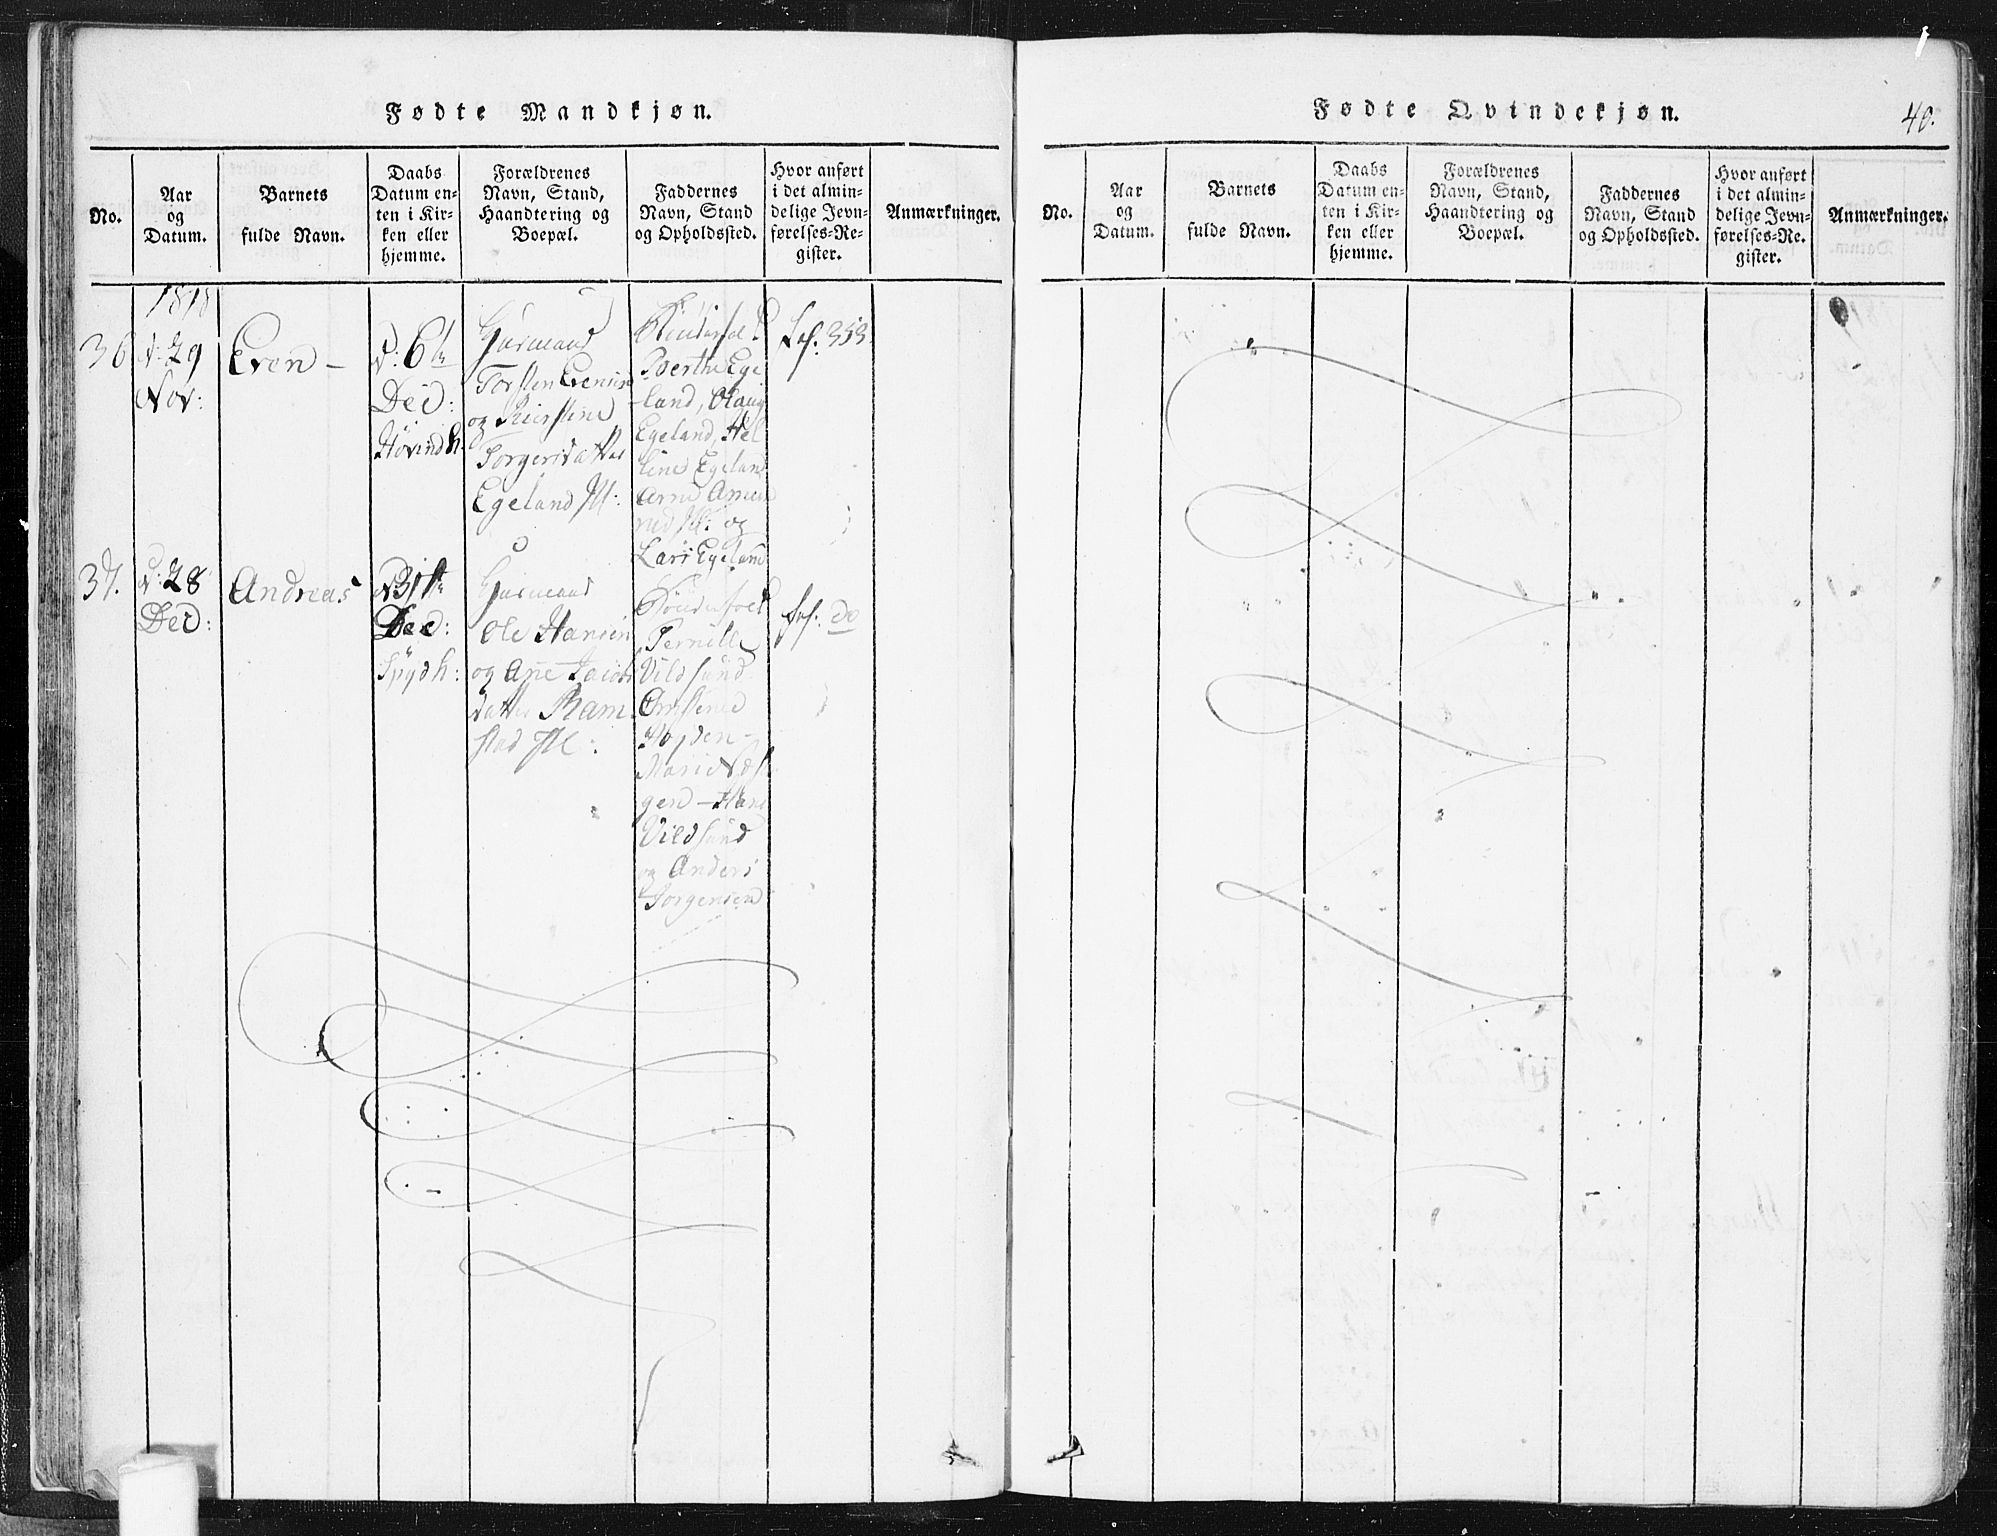 Fødte Mandkjøn.
No.
Aar
og
Datum.
Barnets
fulde Navn.
Daabs
Datum en-
ten i Kir-
ken eller
hjemme.
Forældrenes
Navn, Stand,
Haandtering og
Boepæl.
Faddernes
Navn, Stand
og Opholdssted.
Hvor anført
i det almin-
delige Jevn-
førelses-Re-
gister.
Anmærkninger.
1818
36
d: 29
Nov:
Even –
d: 6te
Dec:
Høvindh.
Gaarmand
Torsten Evensen
og Kierstine
Torgersdatter
Egeland Hl:
Berthe Ege
-land, Olaug
Egeland, Hel
line Egeland
Arne
og
Lars Egeland
Fol: 353
37.
d: 28
Dec:
Andreas
d 31te
Dec:
Spydh:
Gaarmand
Ole Hansen
og Ane Jacobs
datter Ram
stad Hl:
Pernille
Vildsund
Højden –
Marie Næs
gen – Hans
Vildsund
og Anders
Jorgensen
Fol: do
Fødte Qvindekjøn.
40.
No.
Aar
og
Datum.
Barnets
fulde Navn.
Daabs
Datum en-
ten i Kir-
ken eller
hjemme.
Forældrenes
Navn, Stand,
Haandtering og
Boepæl.
Faddernes
Navn, Stand
og Opholdssted.
Hvor anført
i det almin-
delige Jevn-
førelses-Re-
gister.
Anmærkninger.